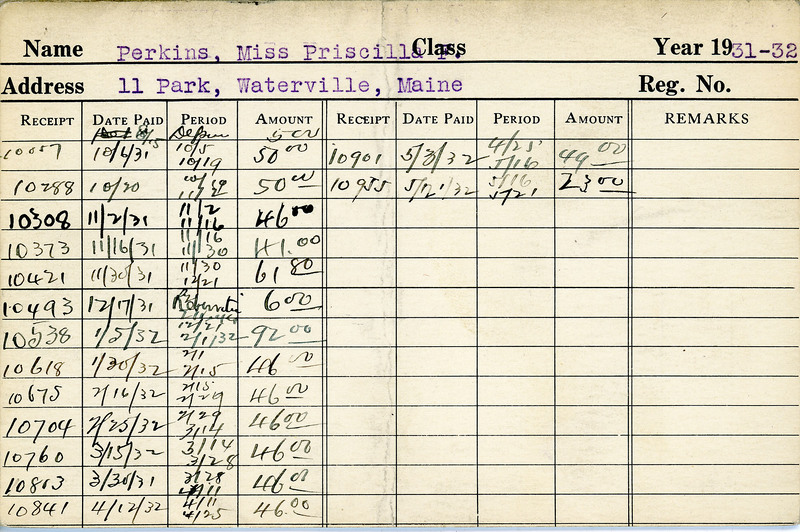 Name Perkins, Miss Priscilla P. Class Year 1931-32
Address 11 Park, Waterville, Maine Reg. No.
RECEIPT DATE PAID PERIOD AMOUNT RECEIPT DATE PAID PERIOD AMOUNT REMARKS
5 00
10057 10/6/31 10/5 10/19 50 00 10901 5/3/32 4/25 5/16 49 00
10288 10/20 10/19 50 00 10955 5/21/32 5/16 5/21 23 00
10308 11/2/31 11/2 11/16 46 00
10373 11/16/31 11/16 11/30 41.00
10421 11/30/31 11/30 12/21 61 80
10493 12/17/31 6 00
10538 1/5/32 2/1/32 92 00
10618 1/30/32 2/1 2/15 46 00
10675 2/16/32 2/15 2/29 46 00
10704 2/25/32 2/29 3/14 46 00
10760 3/15/32 3/14 3/28 46 00
10803 3/30/31 3/28 4/11 46 00
10841 4/12/32 4/11 4/25 46.00